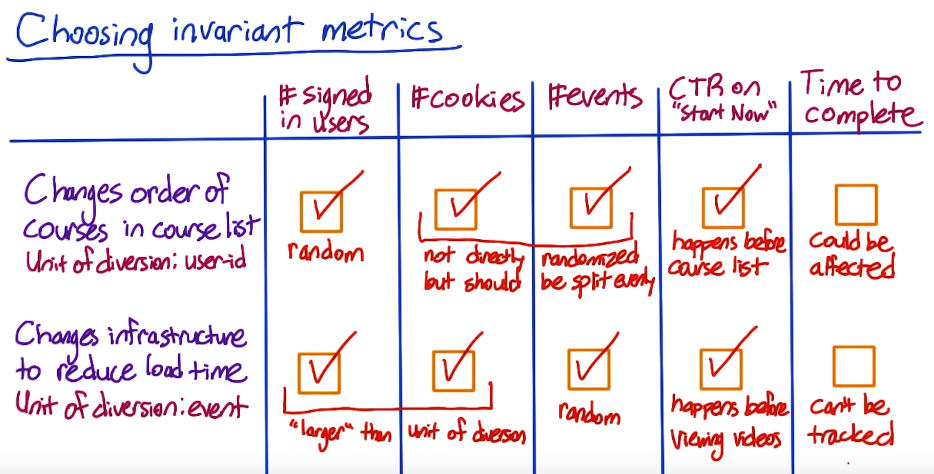 Choosing invariant metrics
#signed
in users
#cookies
#events
CTR on
"Start Now"
Time to
complete
Changes order of
courses in course list
Unit of diversion: user-id
random
not directly randomized
but should be split evenly
happens before
course list
Could be
affected
Changes infrastructure
to reduce load time
Unit of diversion: event
"larger" than unit of diverson
random
happens before
viewing videos
can't be
tracked